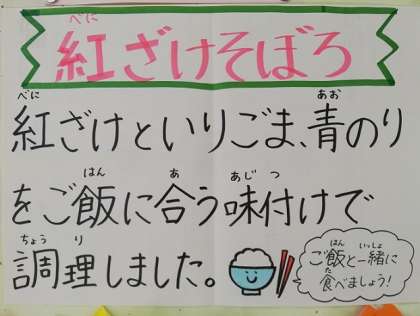 べに
紅ざけそぼろ
べに あお
紅ざけといりごま、青のり
はん あ あじ つ
をご飯に合う味付けで
ちょう り
調理しました。
はん いっしょ
ご飯と一緒に
た
食べましょう!